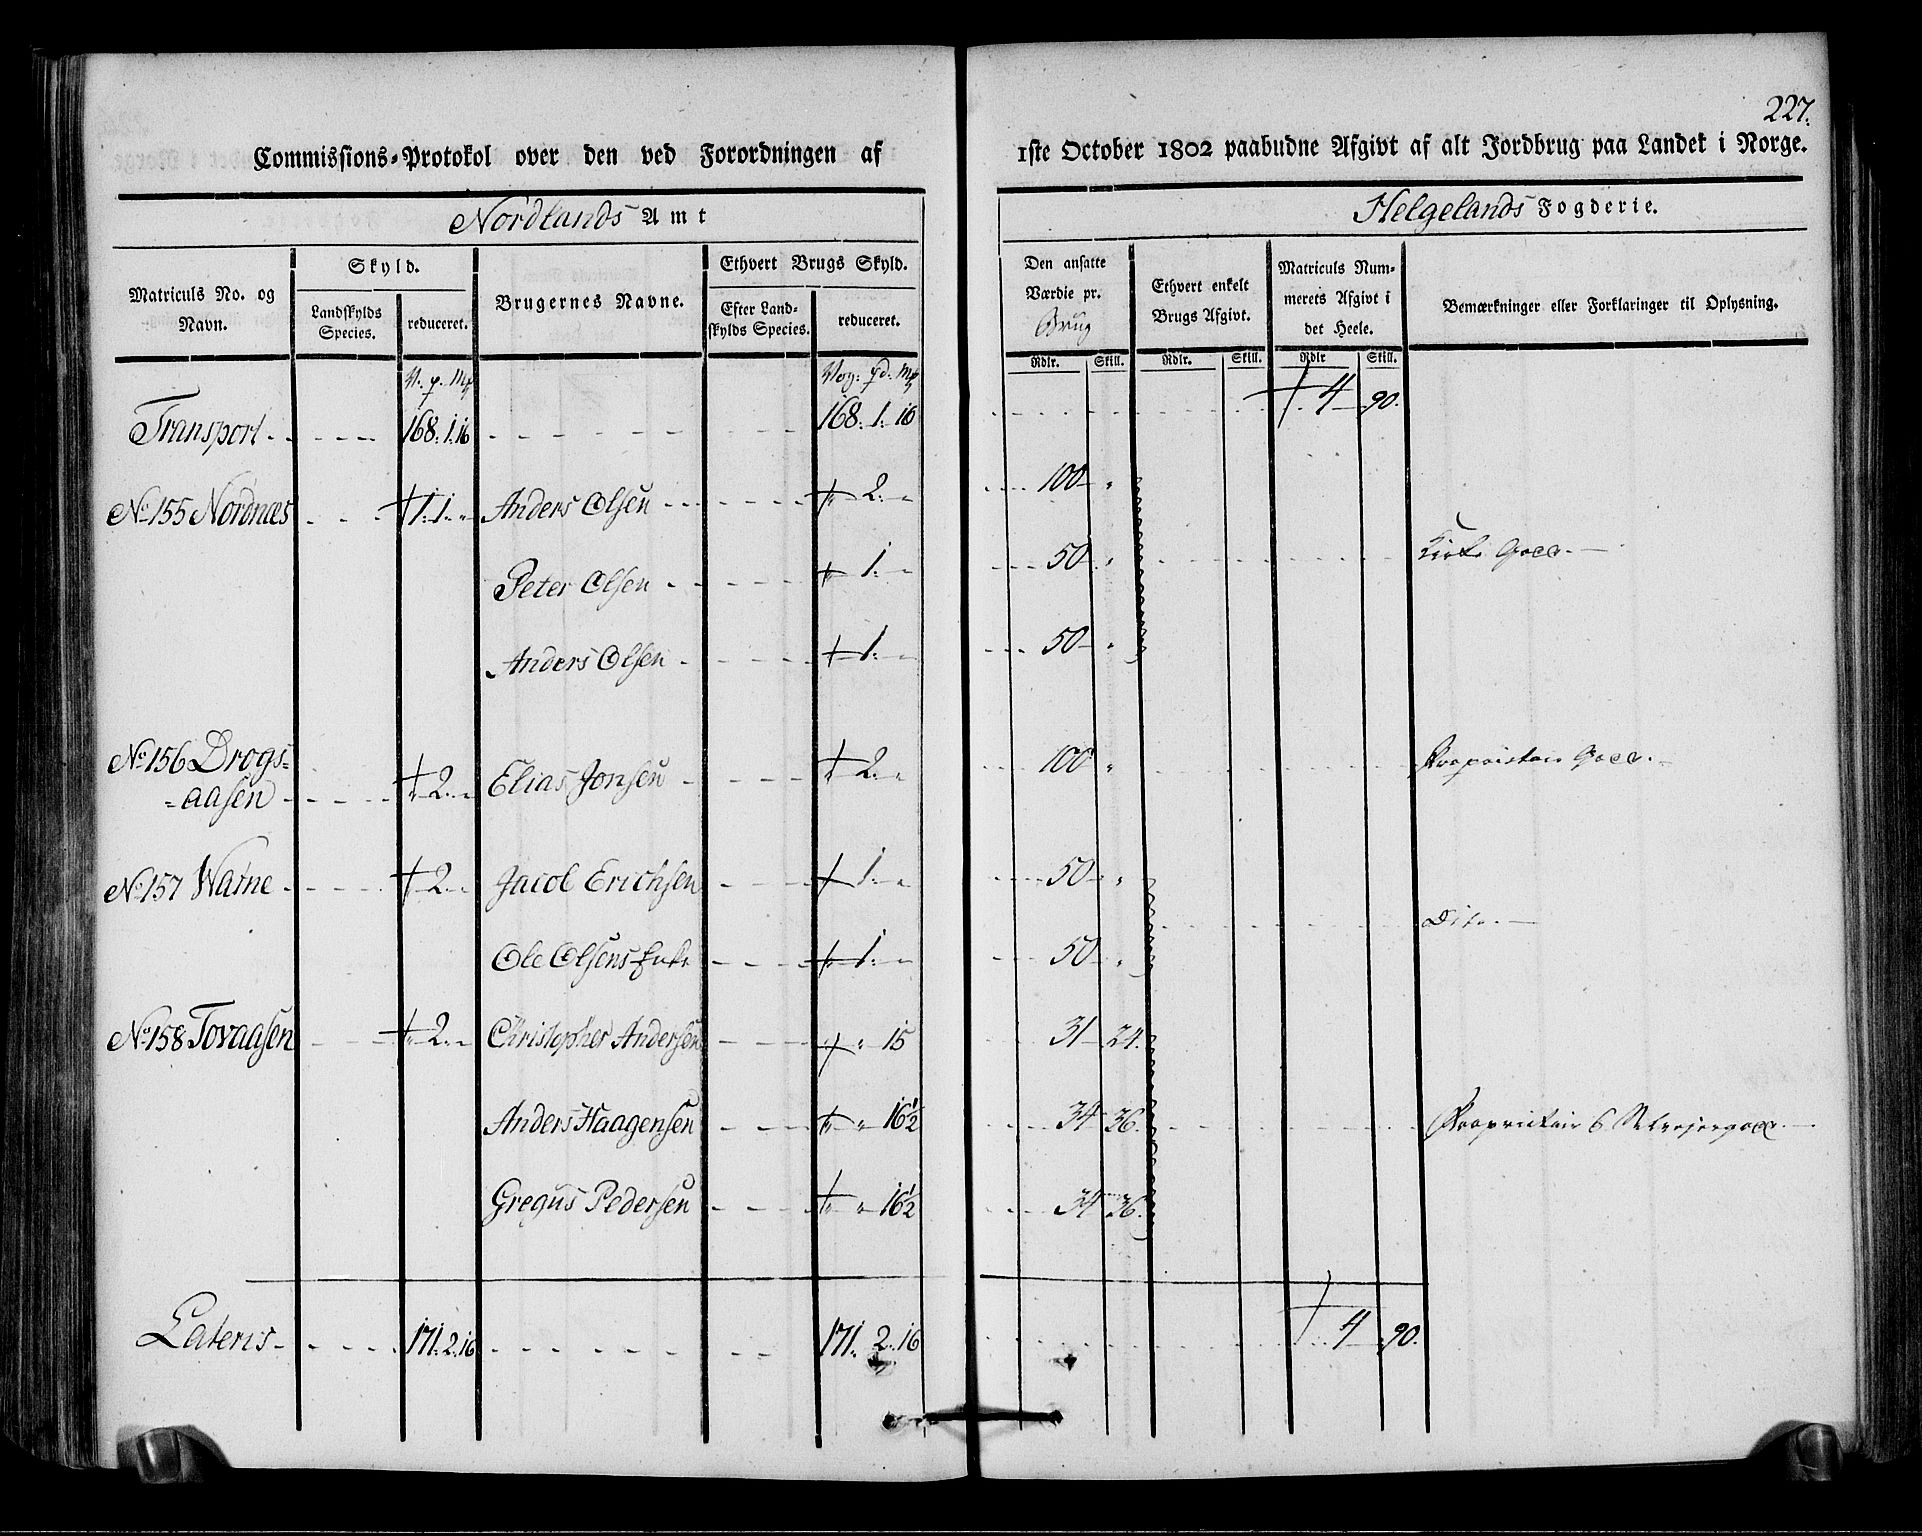 227.
Commissions-Protokol over den ved Forordningen af 1ste October 1802 paabudne Afgivt af alt Jordbrug paa Landet i Norge.
Nordlands Amt Helgelands Fogderie.
Matriculs No. og Navn. Skyld. Landskylds Species. reduceret. Brugernes Navne. Ethvert Brugs Skyld. Efter Landskylds Species. reduceret. Den ansatte Værdie pr. Brug Ethvert enkelt Brugs Afgivt. Matriculs Nummerets Afgivt i det Heele. Bemærkninger eller Forklaringer til Oplysning.
Rdlr. Skill. Rdlr. Skill. Rdlr Skill.
Transport 168. 1. 16 168. 1. 16 4 90.
No 155 Nordnæs 1. 1. „ Anders Olsen 2. „ 100 „
Peter Olsen 1. „ 50 „ Kirke Goes.
Anders Olsen 1. „ 50 „
No 156 Drogs=
=aasen 2. „ Elias Jonsen 2. „ 100 „ Proprietair Goes.
No 157 Warne 2. „ Jacob Erichsen 1. „ 50 „
Ole Olsens Enke 1. „ 50 „ Dito
No 158 Tovaasen 2. „ Christopher Andersen „ 15 31 24.
Anders Haagensen „ 16½ 34 36. Proprietair & Selvejergoes.
Gregus Pedersen „ 16½ 34 36.
Lateris 171. 2. 16 171. 2. 16 4 90.